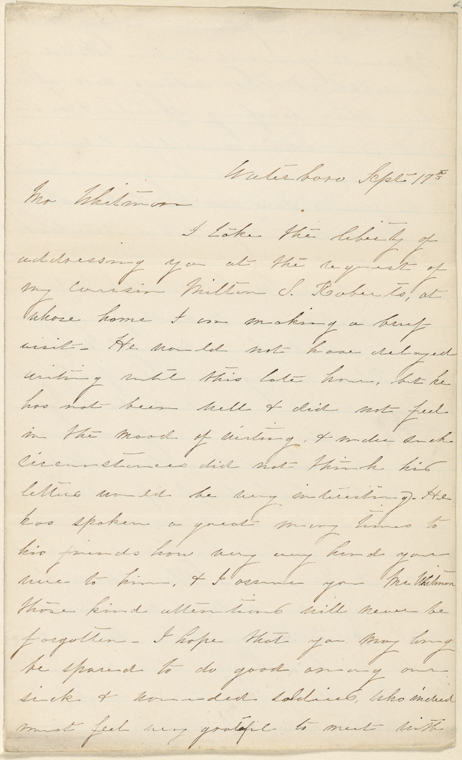 Waterboro Sept 17th
Mr Whitman
I take the liberty of
addressing you at the request of
my cousin Milton S. Roberts, at
whose home I am making a brief
visit - He would not have delayed
writing until this late hour, but he
has not been well & did not feel
in the mood of writing, & under such
circumstances did not think his
letters would be very interesting. He
has spoken a great many times to
his friends how very very kind you
were to him, & I assure you Mr Whitman
those kind attentions will never be
forgotten - I hope that you may long
be spared to do good among our
sick & wounded soldiers, who indeed
must feel very grateful to meet with